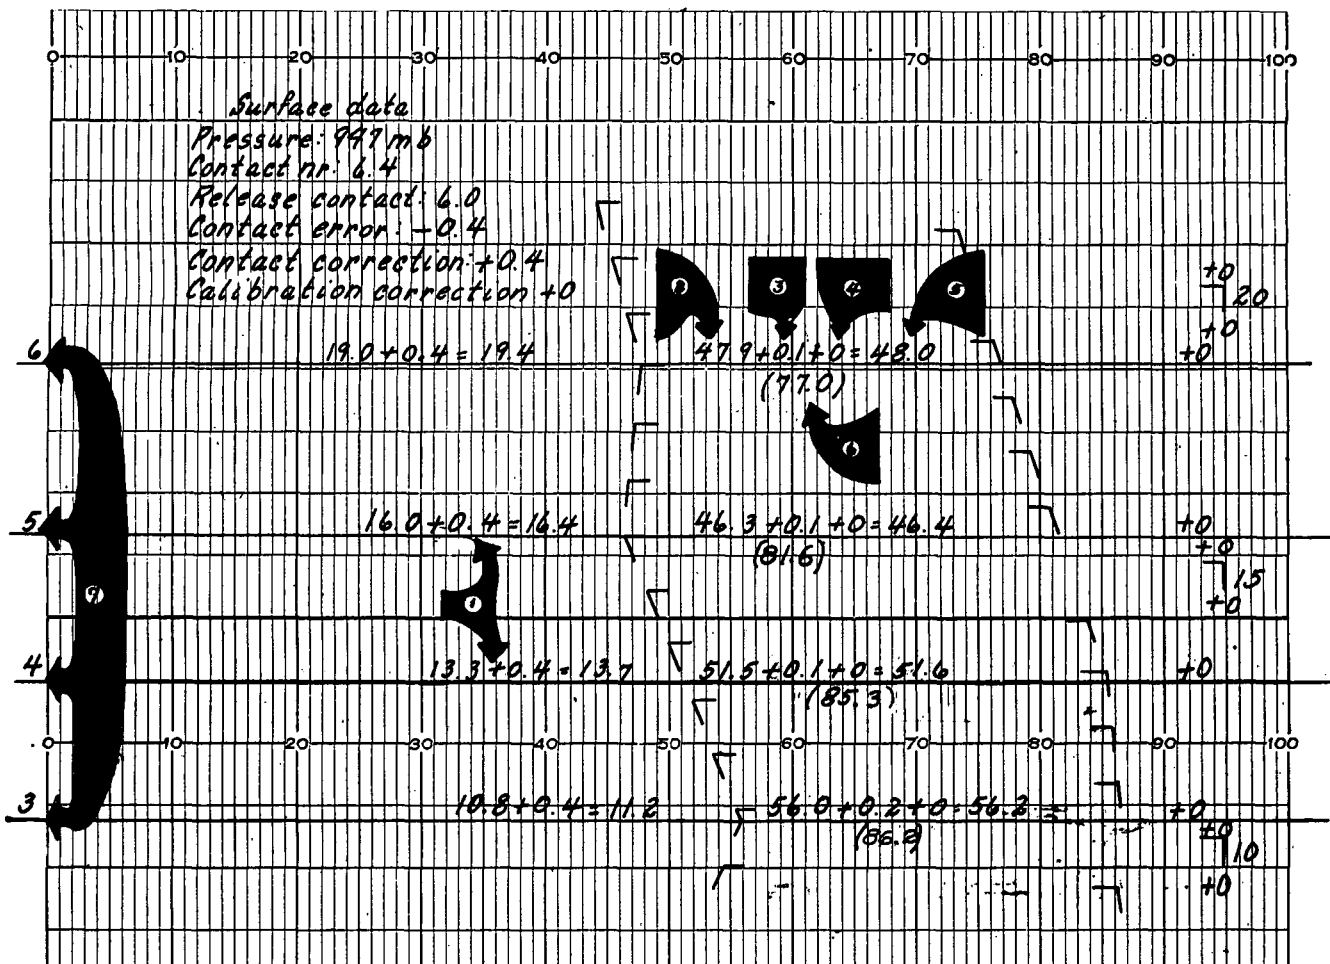 0 10 20 30 40 50 60 70 80 90 100
Surface data
Pressure: 947 mb
Contact nr: 6.4
Release contact: 6.0
Contact error: -0.4
Contact correction: +0.4
Calibration correction +0
2 3 4 5
+0
20
+0
6 19.0+0.4=19.4 47.9+0.1+0=48.0 +0
(77.0)
6
5 16.0+0.4=16.4 46.3+0.1+0=46.4 +0
(81.6) +0
15
7 1 +0
4 13.3+0.4=13.7 51.5+0.1+0=51.6 +0
(85.3)
0 10 20 30 40 50 60 70 80 90 100
3 10.8+0.4=11.2 56.0+0.2+0=56.2 +0
(86.2) +0
10
+0